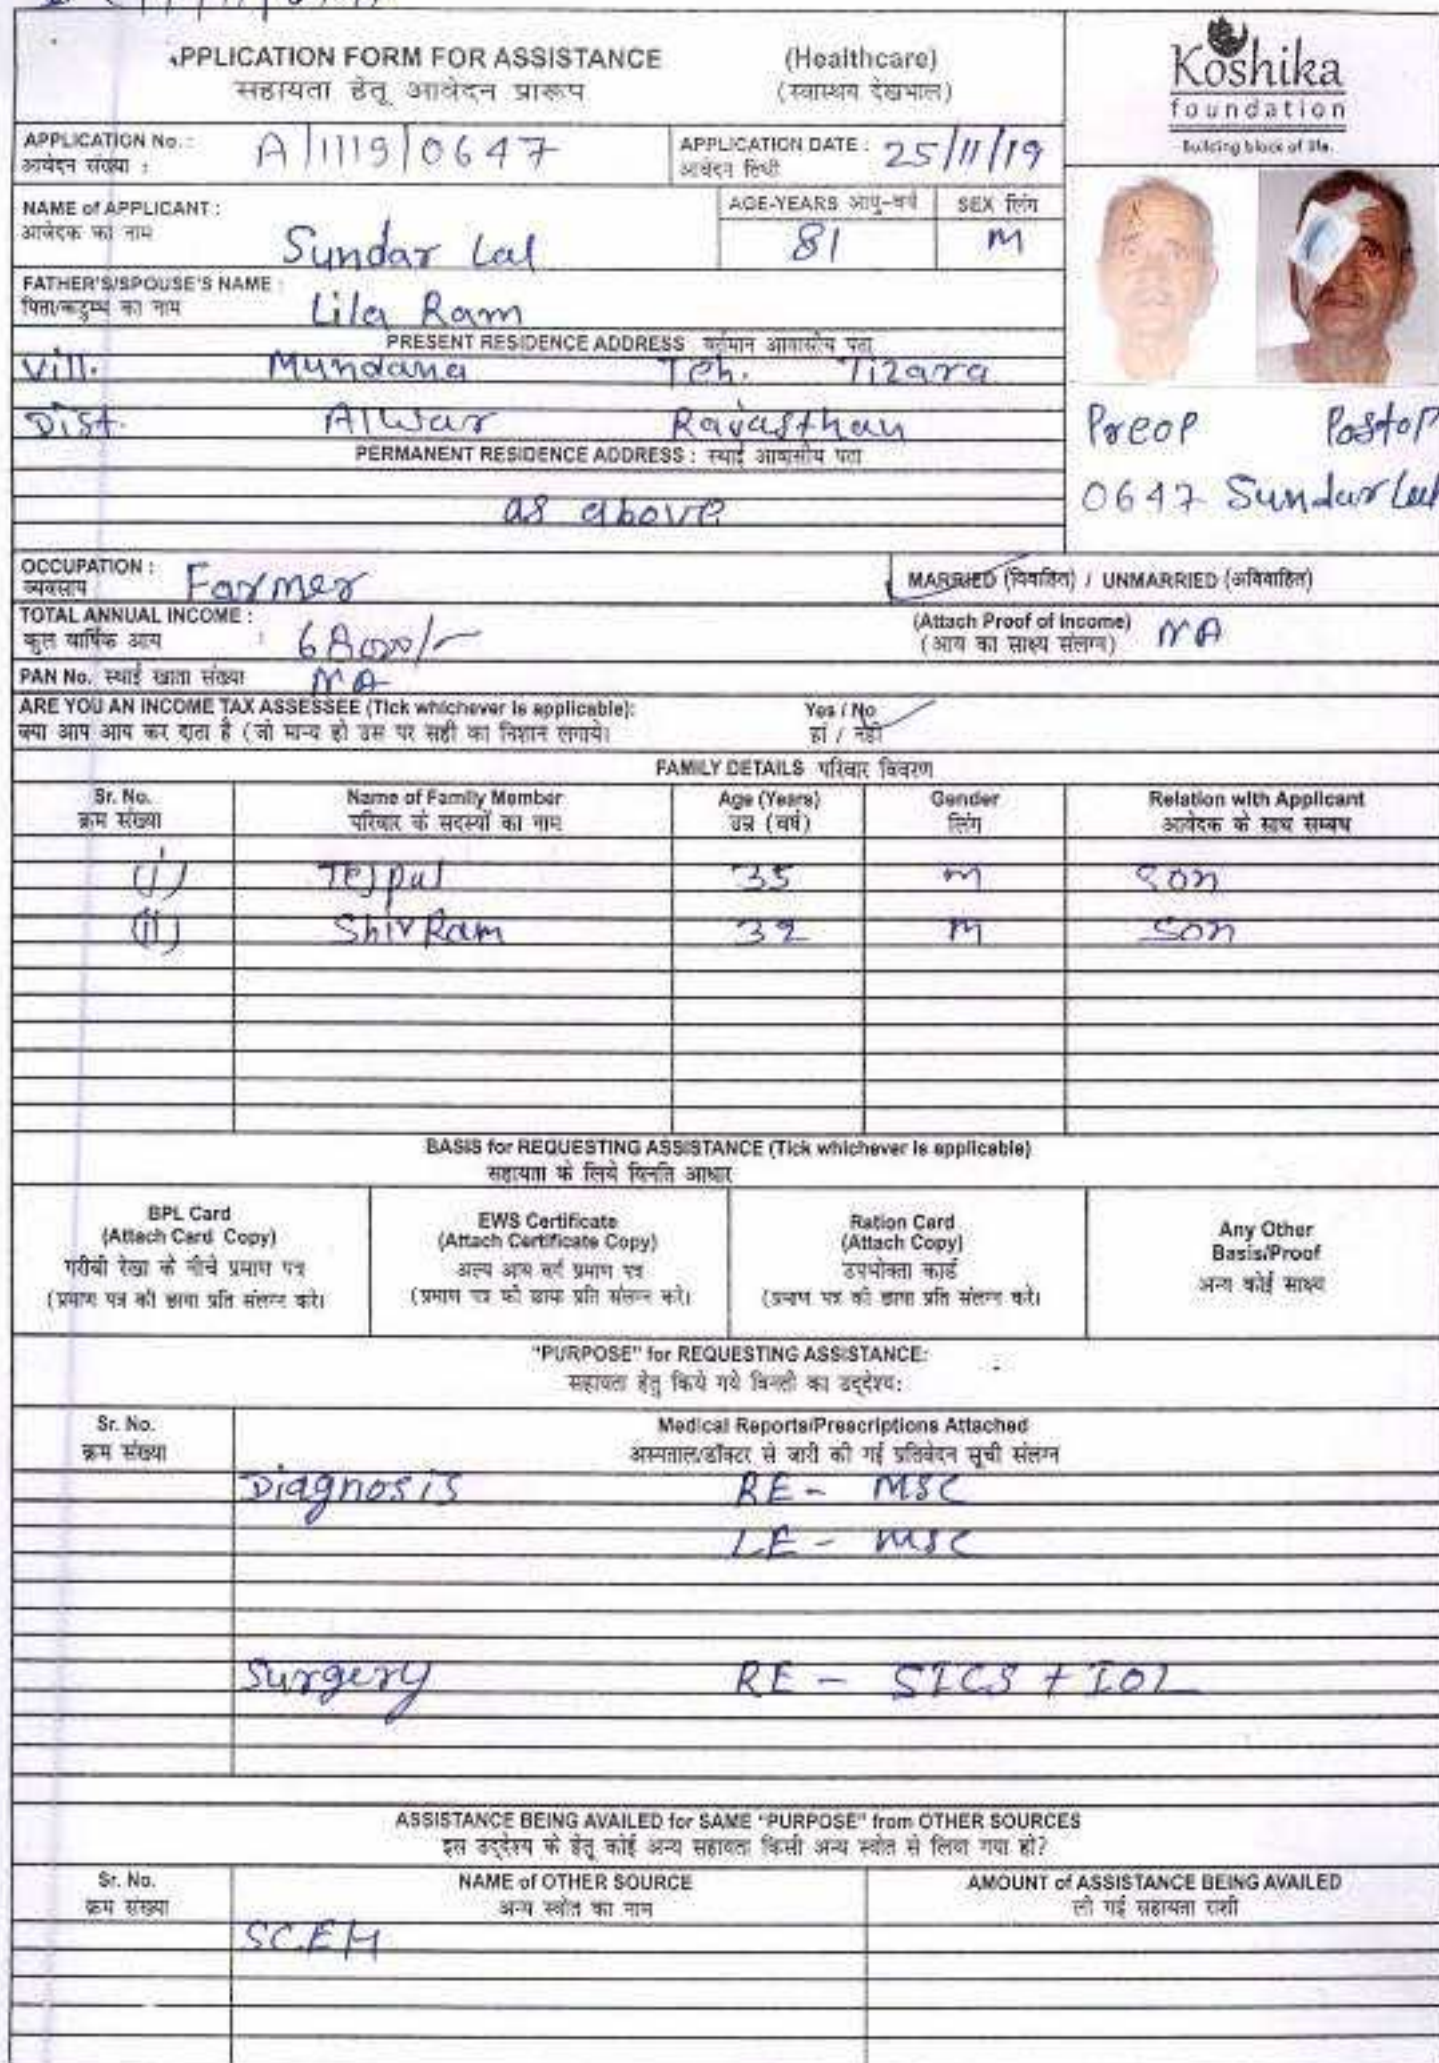 APPLICATION FORM FOR ASSISTANCE (Healthcare)
सहायता हेतू आवेदन प्रारूप (स्वास्थय देखभाल)
Koshika
foundation
building block of life.
APPLICATION No. : A/1119/0647 APPLICATION DATE : 25/11/19
आवेदन संख्या : आवेदन तिथी
NAME of APPLICANT : Sundar Lal AGE-YEARS आयु-वर्ष 81 SEX लिंग M
आवेदक का नाम
FATHER'S/SPOUSE'S NAME : Lila Ram
पिता/कटुम्ब का नाम
PRESENT RESIDENCE ADDRESS वर्तमान आवासीय पता
Vill. Mundana Teh. Tizara
Dist. Alwar Rajasthan
PERMANENT RESIDENCE ADDRESS : स्थाई आवासीय पता
as above
Preop Postop
0647 Sundar Lal
OCCUPATION : Farmer MARRIED (विवाहित) / UNMARRIED (अविवाहित)
व्यवसाय
TOTAL ANNUAL INCOME : (Attach Proof of Income) NA
कुल वार्षिक आय : (आय का साक्ष्य संलग्न)
PAN No. स्थाई खाता संख्या NA
ARE YOU AN INCOME TAX ASSESSEE (Tick whichever is applicable): Yes / No
क्या आप आय कर दाता है (जो मान्य हो उस पर सही का निशान लगाये। हां / नहीं
FAMILY DETAILS परिवार विवरण
Sr. No. Name of Family Member Age (Years) Gender Relation with Applicant
क्रम संख्या परिवार के सदस्यों का नाम उम्र (वर्ष) लिंग आवेदक के साथ सम्बध
(i) Tejpal 35 M Son
(ii) Shiv Ram 32 M Son
BASIS for REQUESTING ASSISTANCE (Tick whichever is applicable)
सहायता के लिये विनति आधार
BPL Card
(Attach Card Copy)
गरीबी रेखा के नीचे प्रमाण पत्र
(प्रमाण पत्र की छाया प्रति संलग्न करे।
EWS Certificate
(Attach Certificate Copy)
अल्प आय वर्ग प्रमाण पत्र
(प्रमाण पत्र की छाया प्रति संलग्न करे।
Ration Card
(Attach Copy)
उपभोक्ता कार्ड
(प्रमाण पत्र की छाया प्रति संलग्न करे।
Any Other
Basis/Proof
अन्य कोई साक्ष्य
"PURPOSE" for REQUESTING ASSISTANCE:
सहायता हेतु किये गये विनती का उद्देश्य:
Sr. No. Medical Reports/Prescriptions Attached
क्रम संख्या अस्पताल/डॉक्टर से जारी की गई प्रतिवेदन सूची संलग्न
Diagnosis RE - MSC
LE - MSC
Surgery RE - SICS + IOL
ASSISTANCE BEING AVAILED for SAME "PURPOSE" from OTHER SOURCES
इस उद्देश्य के हेतू कोई अन्य सहायता किसी अन्य स्त्रोत से लिया गया हो?
Sr. No. NAME of OTHER SOURCE AMOUNT of ASSISTANCE BEING AVAILED
क्रम संख्या अन्य स्त्रोत का नाम ली गई सहायता राशी
SCEH